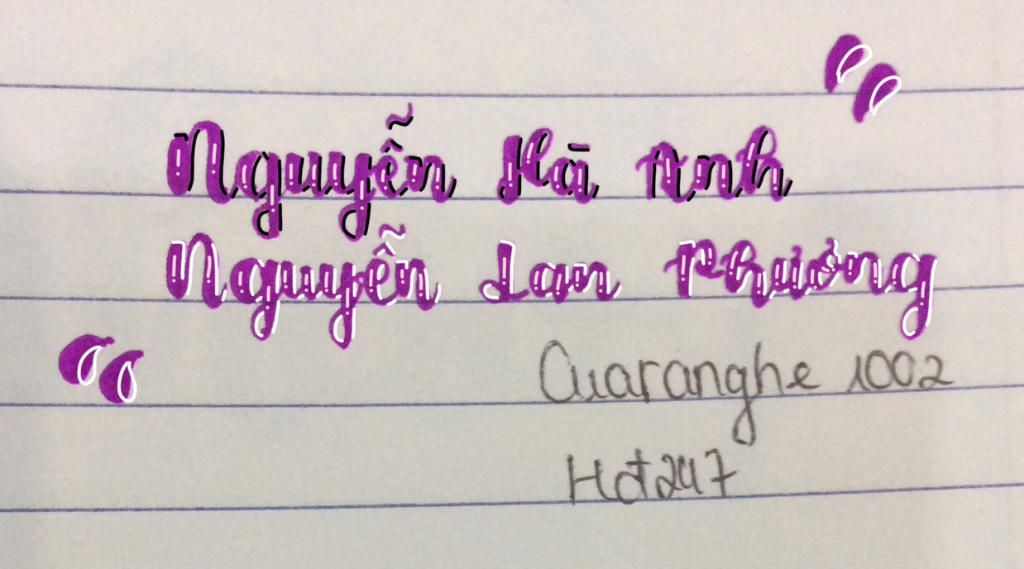 "
Nguyễn Hà Anh
Nguyễn Lan Phương
"
Cuaranghe 1002
Hđ247